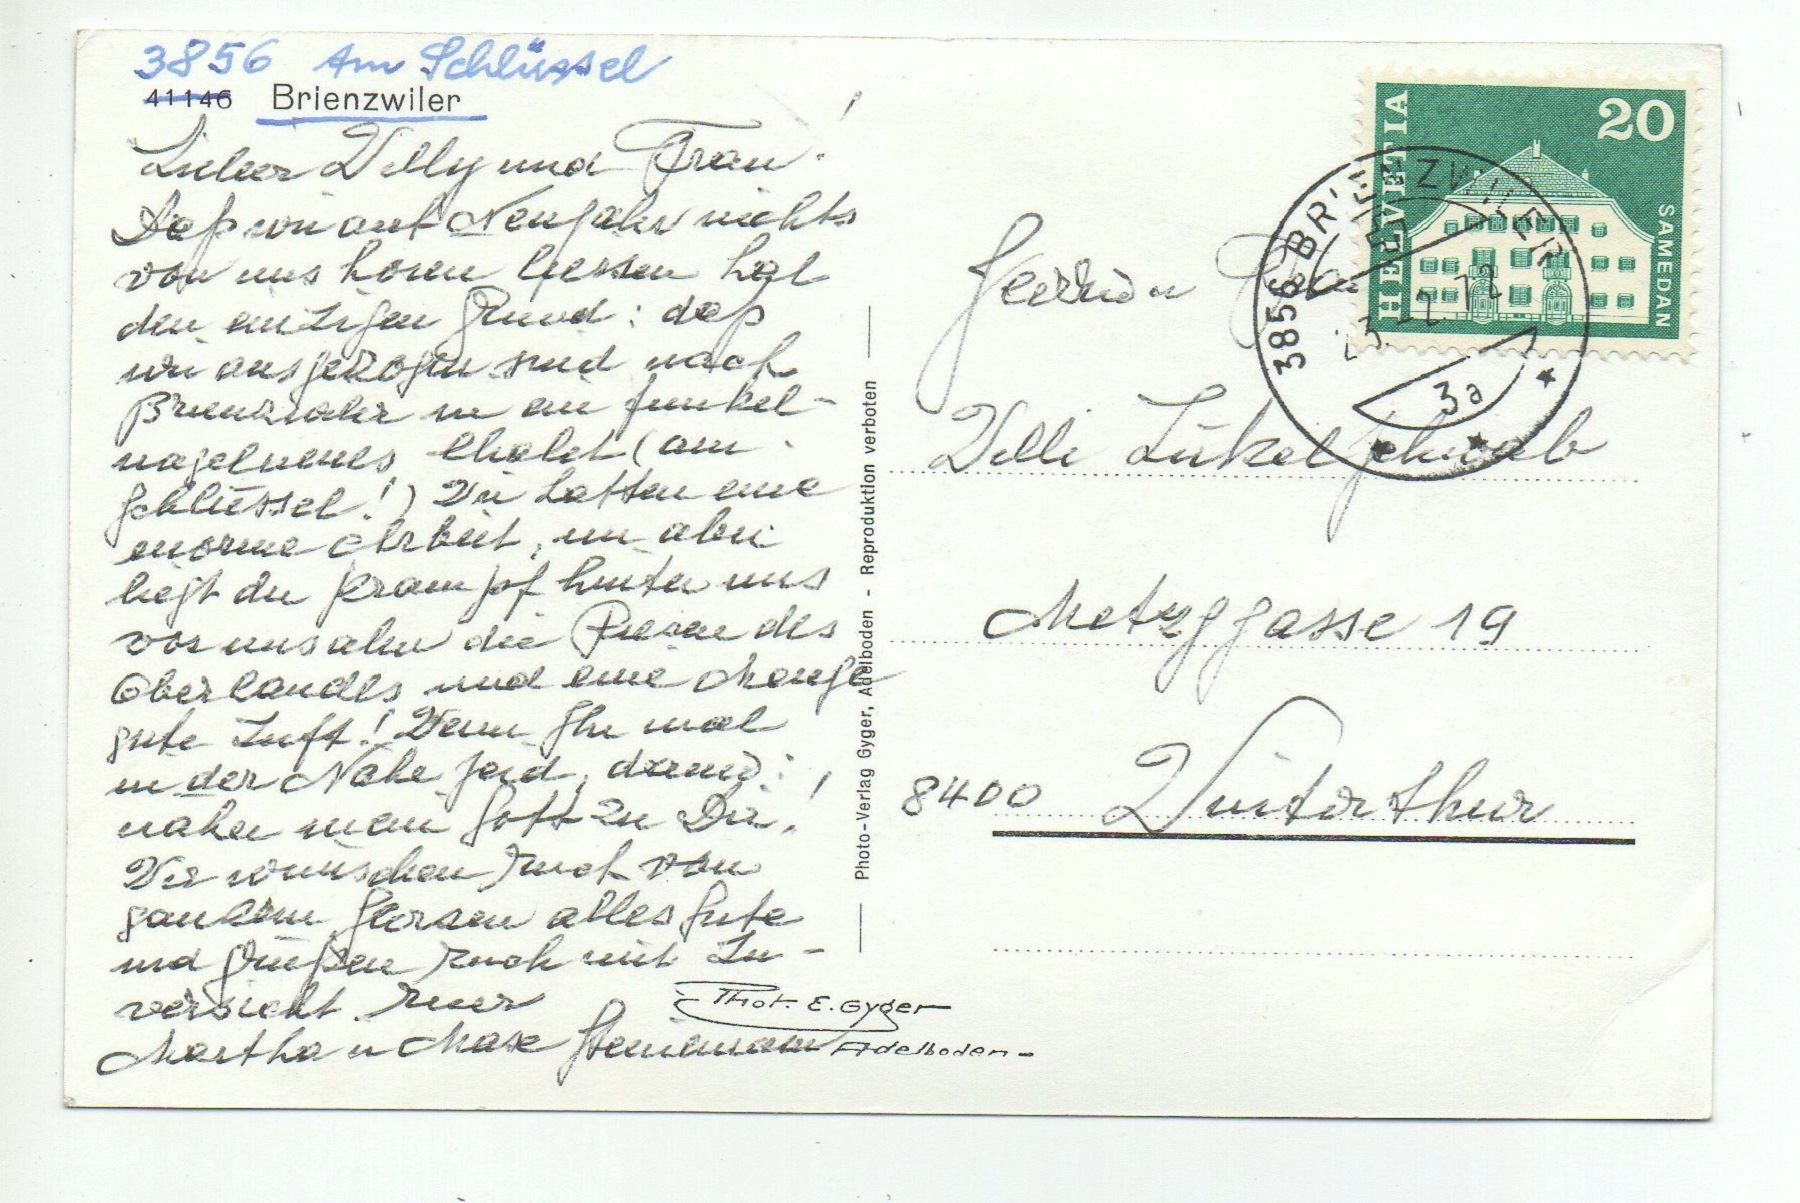 3856 Am Schlüssel
41146 Brienzwiler
Lieber Willy und Frau!
Daß wir auf Neujahr nichts
von uns hören liessen hat
den einzigen Grund: daß
wir ausgezogen sind nach
Brienzwiler in ein funkel-
nagelneues Chalet (am
Schlüssel!) Wir hatten eine
enorme Arbeit, nun aber
liegt der Krampf hinter uns
vor uns aber die Riesen des
Oberlandes und eine Menge
gute Luft! Wenn Ihr mal
in der Nähe seid, dann:
näher mein Gott zu Dir!
Wir wünschen Euch von
ganzem Herzen alles Gute
und grüßen Euch mit Zu-
versicht Euer
Martha u Max
Herrn u
Willi
Metzggasse 19
8400 Winterthur
Photo-Verlag Gyger, Adelboden - Reproduktion verboten
Phot. E. Gyger
Adelboden-
HELVETIA
20
SAMEDAN
3856 BRIENZWILER
-2.72
3a